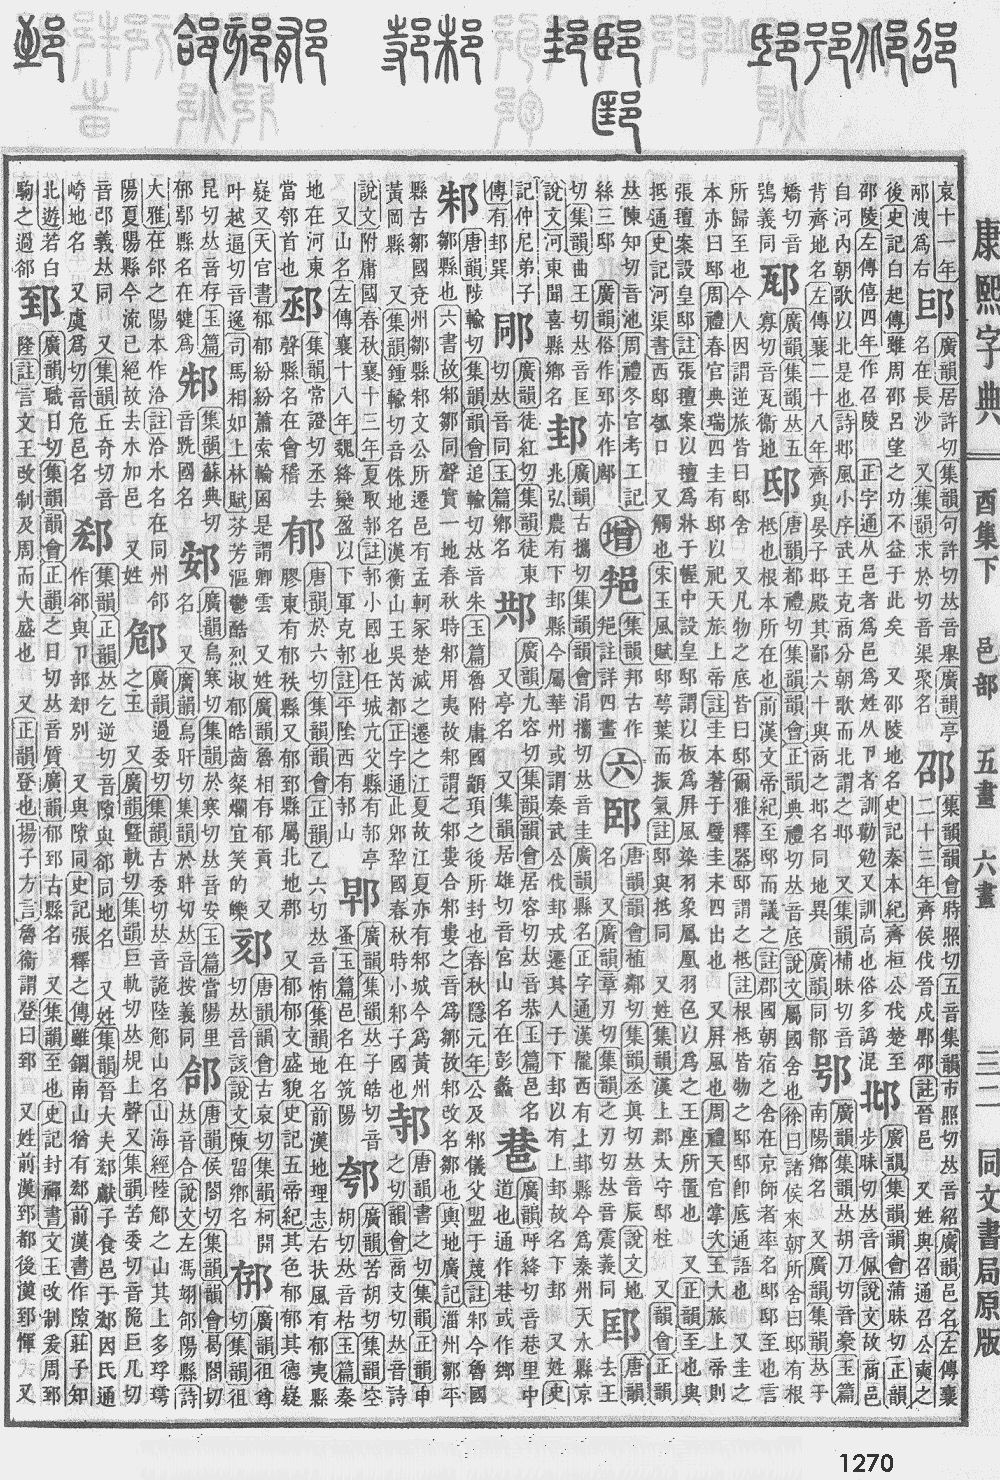 康熙字典 酉集下 邑部 五畫 六畫 三二 同文書局原版
哀十一年
邴洩爲右
䢹
廣韻居許切集韻句許切𠀤音舉廣韻亭
名在長沙 又集韻求於切音渠聚名
邵
集韻韻會時照切五音集韻市照切𠀤音紹廣韻邑名左傳襄
二十三年齊侯伐晉戍郫邵註晉邑 又姓與召通召公奭之
後史記白起傳雖周邵呂望之功不益于此矣 又邵陵地名史記秦本紀齊桓公伐楚至
邵陵左傳僖四年作召陵 正字通从邑者爲邑爲姓从卩者訓勸勉又訓高也俗多譌混
邶
廣韻集韻韻會蒲昧切正韻
步昧切𠀤音佩說文故商邑
自河內朝歌以北是也詩邶風小序武王克商分朝歌而北謂之邶 又集韻補昧切音
背齊地名左傳襄二十八年齊與晏子邶殿其鄙六十與商之邶名同地異
廣韻集韻𠀤胡刀切音豪玉篇
南陽鄉名 又廣韻集韻𠀤于
嬌切音
鴞義同
邷
廣韻集韻𠀤五
寡切音瓦衞地
邸
唐韻都禮切集韻韻會正韻典禮切𠀤音底說文屬國舍也徐曰諸侯來朝所舍曰邸有根
柢也根本所在也前漢文帝紀至邸而議之註郡國朝宿之舍在京師者率名邸邸至也言
所歸至也今人因謂逆旅皆曰邸舍 又凡物之底皆曰邸爾雅釋器邸謂之柢註根柢皆物之邸邸卽底通語也 又圭之
本亦曰邸周禮春官典瑞四圭有邸以祀天旅上帝註圭本著于璧圭末四出也 又屛風也周禮天官掌次王大旅上帝則
張氈案設皇邸註張氈案以氈爲牀于幄中設皇邸謂以板爲屛風染羽象鳳凰羽色以爲之王座所置也 又正韻至也與
抵通史記河渠書西邸瓠口 又觸也宋玉風賦邸萼葉而振氣註邸與抵同 又姓集韻漢上郡太守邸杜 又韻會正韻
𠀤陳知切音池周禮冬官考工記
絲三邸 廣韻俗作䢳亦作𨛊
增
𨚍
集韻邦古作
𨚍註詳四畫
六
邼
唐韻
去王
切集韻曲王切𠀤音匡
說文河東聞喜縣鄉名
邽
廣韻古攜切集韻韻會涓攜切𠀤音圭廣韻縣名正字通漢隴西有上邽縣今爲秦州天水縣京
兆弘農有下邽縣今屬華州或謂秦武公伐邽戎遷其人于下邽以有上邽故名下邽 又姓史
記仲尼弟子
傳有邽巽
廣韻徒紅切集韻徒東
切𠀤音同玉篇鄉名
廣韻九容切集韻居容切𠀤音恭玉篇邑名
又亭名 又集韻居雄切音宮山名在彭蠡
巷
廣韻呼絳切音巷里中
道也通作巷或作鄉
邾
唐韻陟輸切集韻韻會追輸切𠀤音朱玉篇魯附庸國顓頊之後所封也春秋隱元年公及邾儀父盟于蔑註邾今魯國
鄒縣也六書故邾鄒同聲實一地春秋時邾用夷故邾謂之邾婁合邾婁之音爲鄒故邾改名鄒也輿地廣記淄州鄒平
縣古鄒國兗州鄒縣邾文公所遷邑有孟軻冢楚滅之遷之江夏故江夏亦有邾城今爲黃州
黃岡縣 又集韻鍾輸切音侏地名漢衡山王吳芮都正字通此郳犂國春秋時小邾子國也
邿
唐韻書之切集韻正韻申
之切韻會商支切𠀤音詩
說文附庸國春秋襄十三年夏取邿註邿小國也任城亢父縣有邿亭
又山名左傳襄十八年魏絳欒盈以下軍克邿註平陰西有邿山
廣韻集韻𠀤子皓切音
蚤玉篇邑名在筑陽
廣韻苦胡切集韻空
胡切𠀤音枯玉篇秦
地在河東
當邻首也
集韻常證切丞去
聲縣名在會稽
郁
唐韻於六切集韻韻會正韻乙六切𠀤音彧集韻地名前漢地理志右扶風有郁夷縣
膠東有郁秩縣又郁郅縣屬北地郡 又郁郁文盛貌史記五帝紀其色郁郁其德嶷
嶷又天官書郁郁紛紛蕭索輪囷是謂卿雲 又姓廣韻魯相有郁貢 又
叶越逼切音逸司馬相如上林賦芬芳漚鬱酷烈淑郁皓齒粲爛宜笑的皪
郂
唐韻韻會古哀切集韻柯開
切𠀤音該說文陳留鄉名
郁
昆切𠀤音存玉篇
郁鄢縣名在犍爲
集韻蘇典切
音跣國名
廣韻烏寒切集韻於寒切𠀤音安玉篇當陽里
名 又廣韻烏旰切集韻於旰切𠀤音按義同
郃
唐韻侯閤切集韻韻會曷閤切
𠀤音合說文左馮翊郃陽縣詩
大雅在郃之陽本作洽註洽水名在同州郃
陽夏陽縣今流已絕故去水加邑 又姓
廣韻過委切集韻古委切𠀤音詭陸郋山名山海經陸郋之山其上多㻬琈
之玉 又廣韻暨軌切集韻巨軌切𠀤䂓上聲又集韻苦委切音跪巨几切
音邔義𠀤同 又集韻丘奇切音
崎地名 又虞爲切音危邑名
郄
集韻正韻𠀤乞逆切音隙與郤同地名 又姓集韻晉大夫郄獻子食邑于郄因氏通
作郤與卩部卻別 又與隙同史記張釋之傳雖錮南山猶有郄前漢書作隙莊子知
北遊若白
駒之過郤
郅
廣韻職日切集韻韻會正韻之日切𠀤音質廣韻郁郅古縣名 又集韻至也史記封禪書文王改制爰周郅
隆註言文王改制及周而大盛也 又正韻登也揚子方言魯衞謂登曰郅 又姓前漢郅都後漢郅惲 又
1270